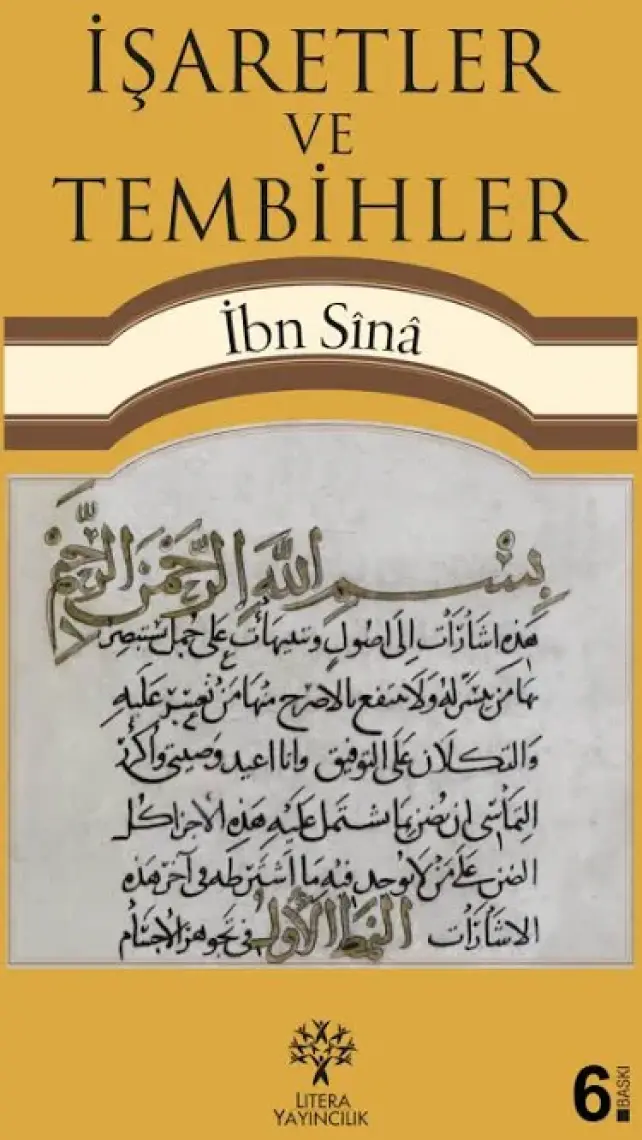 İŞARETLER
VE
TEMBİHLER
İbn Sînâ
بِسْمِ اللهِ الرَّحْمٰنِ الرَّحِيمِ
هَذِهِ اشَارَاتٌ إِلَى اصُولٍ وتنبيهَاتٌ عَلى جُمَلٍ يستبصر
بهَا مَن تيسّر لهُ وَلَا ينتفع بالاصرح منهَا مَنْ تعسّر عَليهِ
وَالتكلان عَلَى التوفيق وانا اعيد وصيتى واكرّر
التمَاسى ان يُضنّ بمَا يشتمل عَليْهِ هَذِهِ الاجزا كل
الضن عَلَى مَنْ لَا يوجد فيهِ مَا اشترطه فى آخر هَذِه
الاشارَات النمط الأول فى تجوهر الاجسَام
LITERA
YAYINCILIK
6. BASKI